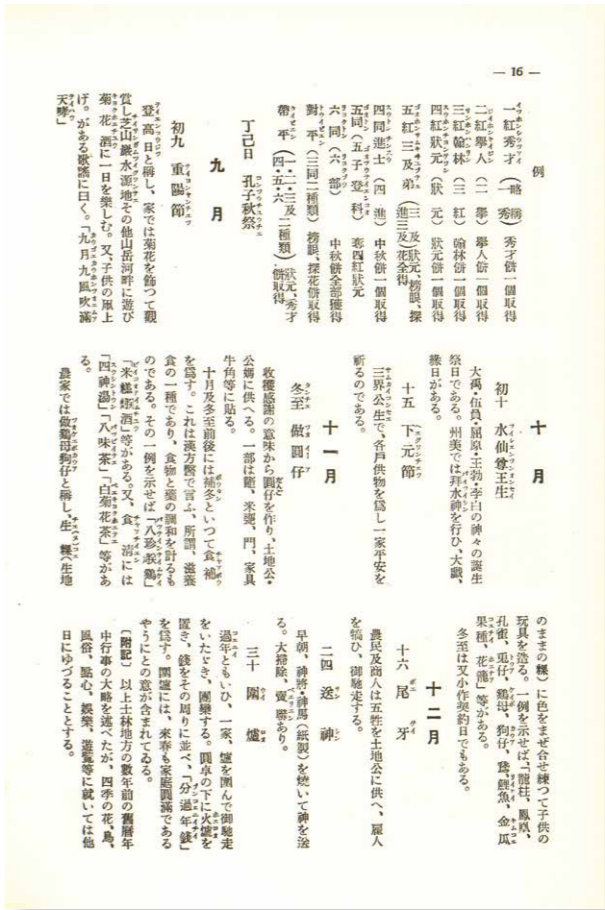 — 16 —
例
一紅秀才(略稱 一秀)秀才併一個取得
二紅擧人(二擧)擧人併一個取得
三紅翰林(三紅)翰林併一個取得
四紅狀元(狀元)狀元併一個取得
五紅三及弟(三及)狀元、榜眼、探
(進三及)花全得
四同進士(四進)中秋併一個取得
五同(五子登科)奪四紅狀元
六同(六部)中秋併全部獲得
對平(三同二種類)榜眼、探花併取得
帶平(一・二・三及二種類)(四・五・六)狀元、秀才併取得
丁己日 孔子秋祭
九月
初九 重陽節
登高日と稱し、家では菊花を飾つて觀
賞し芝山巖水源地その他山岳河畔に遊び
菊花酒に一日を樂しむ。又、子供の凧上
げ。がある歌謠に曰く。「九月九風吹滿
天哮」
十月
初十 水仙尊王生
大禹・伍員・屈原・王勃・李白の神々の誕生
祭日である。州裡では拜水神を行ひ、大戲、
緣日がある。
十五 下元節
三界公生で、各戶供物を爲し一家平安を
祈るのである。
十一月
冬至 做圓仔
收穫感謝の意味から圓仔を作り、土地公・
公媽に供へる。一部は廳、米甕、門、家具
牛角等に貼る。
十月及多至前後には補冬といつて食補
を爲す。これは漢方醫で言ふ、所謂、滋養
食の一種であり、食物と藥の調和を計るも
のである。その一例を示せば「八珍糇鷄」
「米糕燖酒」等がある。又、食淸には
「四神湯」「八味茶」「白菊花茶」等があ
る。
農家では做鷄母狗仔と稱し、生粿(生地
のままの粿)に色をまぜ合せ練つて子供の
玩具を造る。一例を示せば、「龍柱、鳳凰、
孔雀、兎仔、鷄母、狗仔、鵞、鯉魚、金瓜
果種、花籠」等がある。
冬至は又小作契約日でもある。
十二月
十六 尾牙
農民及商人は五牲を土地公に供へ、雇人
を犒ひ、御馳走する。
二四 送神
早朝、神將・神馬(紙製)を燒いて神を送
る。大掃除、賣聯あり。
三十 圍爐
過年ともいひ、一家、爐を圍んで御馳走
をいたゞき、團欒する。圓卓の下に火爐を
置き、錢をその周りに並べ、「分過年錢」
を爲す。圍爐には、來春も家庭圓滿である
やうにとの意が含まれてゐる。
〔附記〕以上士林地方の數年前の舊曆年
中行事の大略を述べたが、四季の花、鳥、
風俗、點心、娛樂、遊覽等に就いては他
日にゆづることとする。